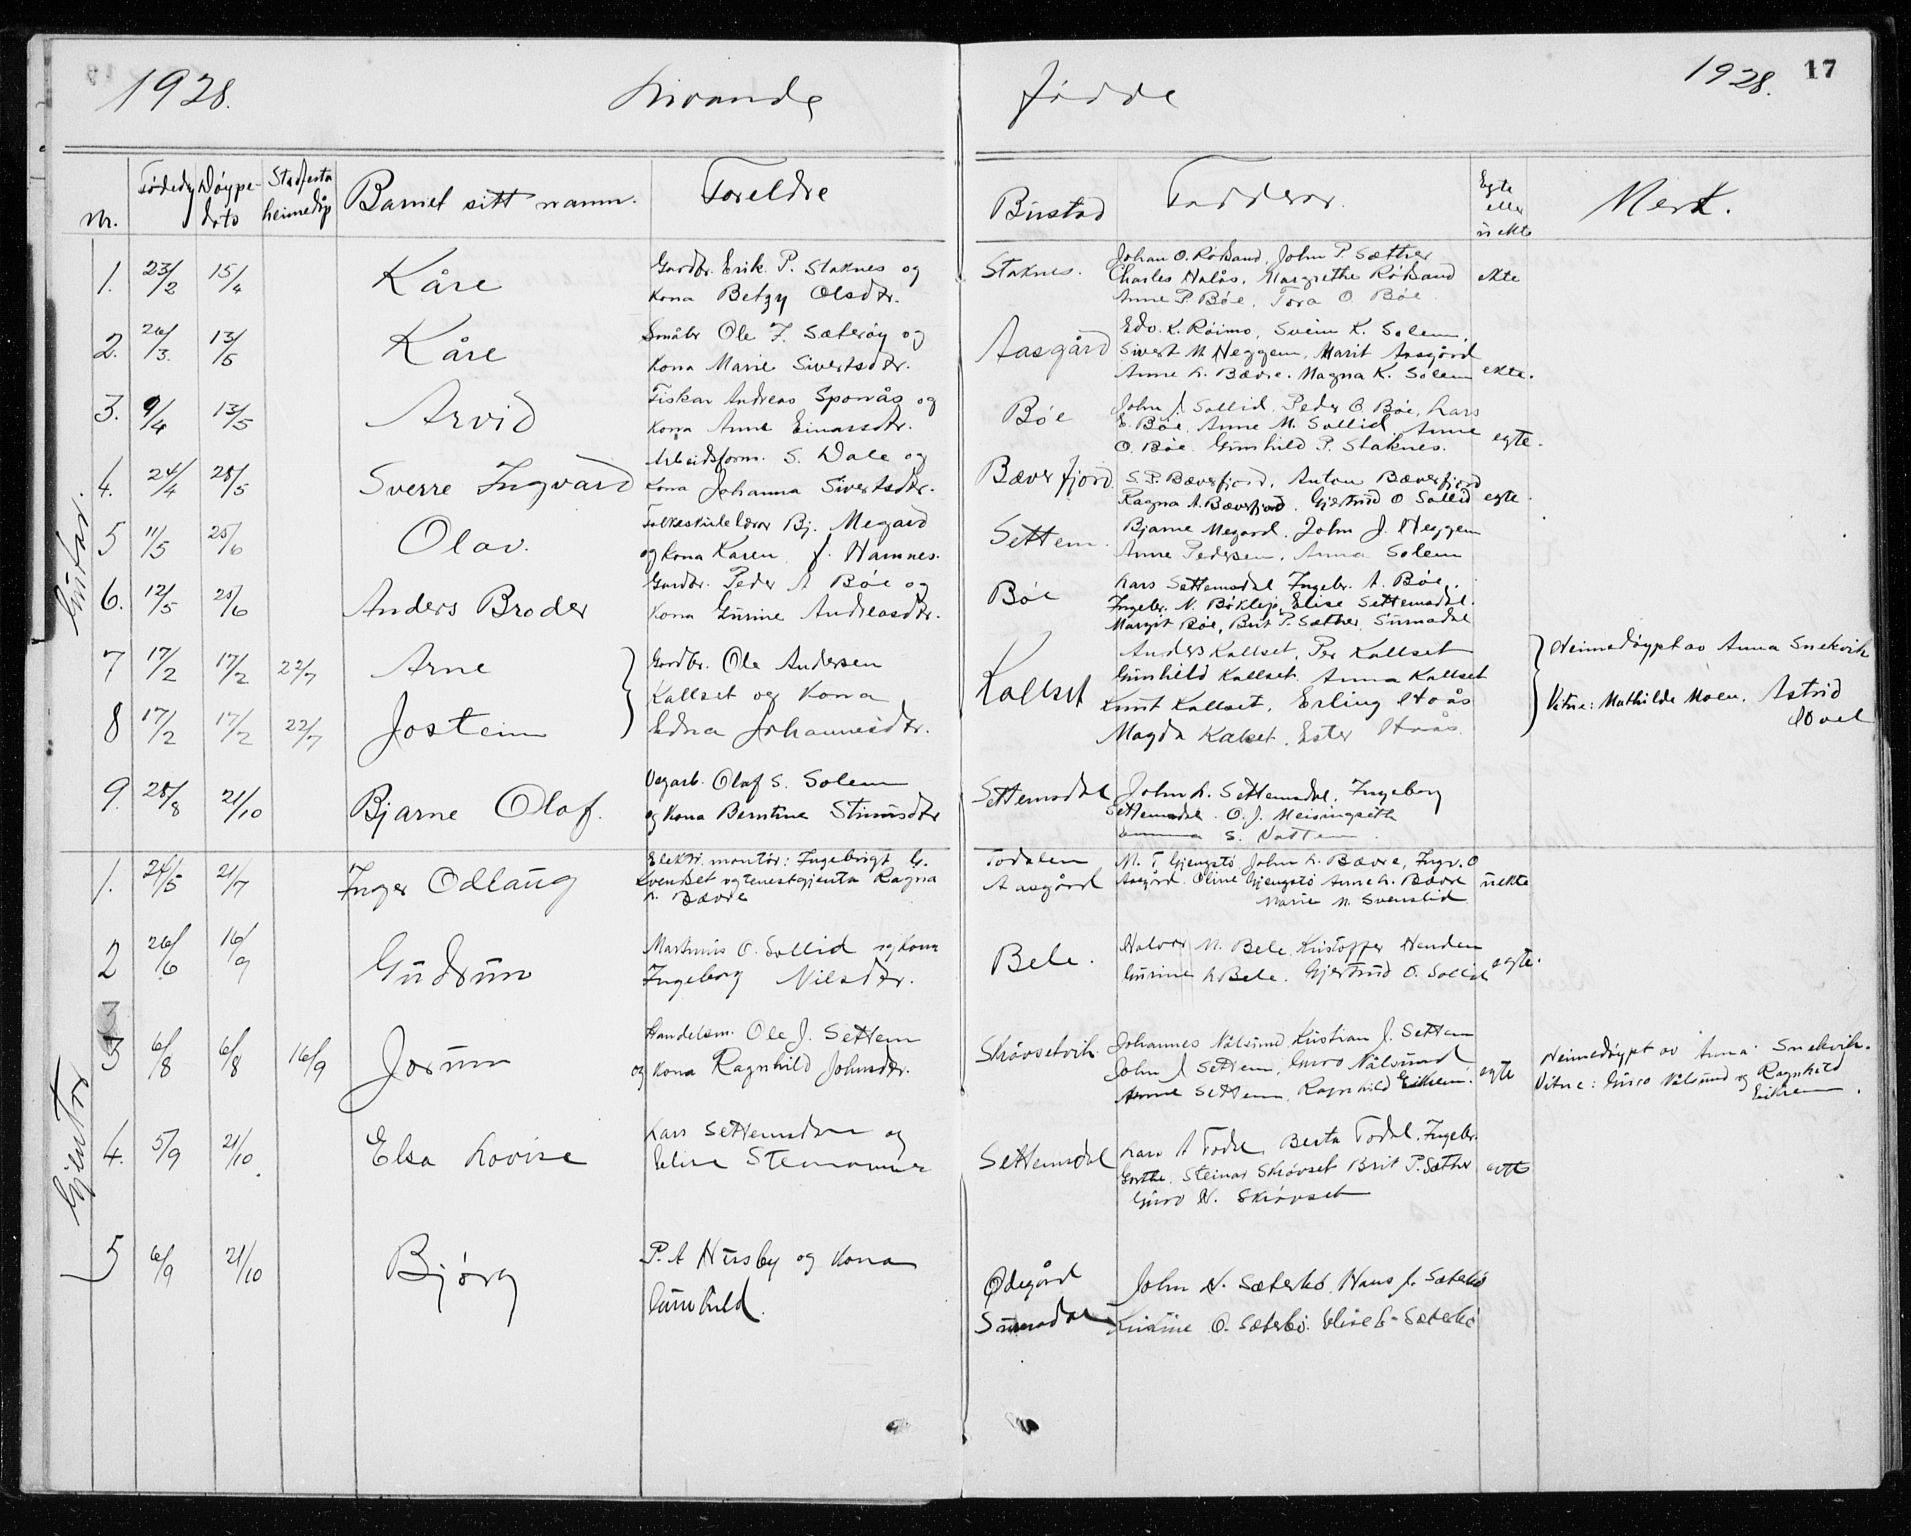 1928. Livande fødde 1928. 17
Nr. Fødedag Døype-dato Stadfesta heimedåp Barnet sitt namn. Foreldre Bustad Fadderar. Egte eller uekte Merk.
Gutar.
1. 23/2 15/4 Kåre Gardbr. Erik P. Staknes og Staknes. Johan O. Røsand, John P. Sæther
kona Betzy Olsdtr. Charles Halås, Margrethe Røsand ekte
Anne P. Bøe, Tora O. Bøe
2. 26/3. 13/5 Kåre Småbr Ole J. Sæterøy og Aasgård Edv. K. Røimo, Svein K. Solem,
kona Marie Sivertsdtr. Sivert M Heggem, Marit Aasgård
Anne L. Bævre. Magna K. Solem ekte.
3. 9/4 13/5 Arvid Fiskar Andreas Sponås og Bøe John J. Sollid, Peder O. Bøe, Lars
kona Anne Einarsdtr. E. Bøe, Anne M. Sollid, Anne
O. Bøe. Gunhild P. Staknes. egte.
4. 24/4 28/5 Sverre Ingvard Arbeidsform. S. Dale og Bæverfjord S. P. Bæverfjord, Anton Bæverfjord
kona Johanna Sivertsdtr. Ragna A. Bæverfjord. Gjertrud O Sollid egte.
5 11/5 25/6 Olav. Folkeskulelærer Bj. Megard Settem. Bjarne Megard. John J. Heggem
og kona Karen f. Hamnes. Anne Pedersen, Anna Solem
6. 12/5 25/6 Anders Broder Gardbr. Peder A Bøe og Bøe Lars Settemsdal Ingebr. A. Bøe,
kona Gurine Andreasdtr. Ingebr. N. Bøklep, Elise Settemsdal.
Margit Bøe, Brit P. Sæther, Surnadal
7 17/2 17/2 22/7 Arne Gardbr. Ole Andersen Kallset Anders Kallset, Per Kallset Heimedøypt av Anna Snekvik
Kallset og kona Gunhild Kallset. Anna Kallset
8 17/2 17/2 22/7 Jostein Edna Johannesdtr. Knut Kallset, Erling Hoås Vitne: Mathilde Moen, Astrid
Magda Kalset. Ester Hoås.
9. 28/8 21/10 Bjarne Olaf. Vegarb. Olaf S. Solem Settemsdal John L. Settemsdal. Ingeborg
og kona Berntine Settemsdal. O. J. Meisingseth
S.
Gjentor
1. 24/5 21/7 Inger Odlaug Elektr. montør: Ingebrigt G. Todalen M. T. Gjengstø John L. Bævre, Ingv. O
Kvendset og tenestgjenta Ragna Aasgård Aasgård. Oline Gjengstø Anne L. Bævre uekte
L. Bævre Marie M. Svenslid
2 26/6 16/9 Gudrun Martinus O. Sollid og kona Bele. Halvor M. Bele Kristoffer Henden
Ingeborg Nilsdtr. Gurine L Bele. Gjertrud O. Sollid egte.
3 6/8 6/8 16/9 Jorunn Handelsm. Ole J. Settem Skrøvsetvik Johannes Nålsund, Kristian J. Settem
og kona Ragnhild Johnsdtr. John J Settem, Guro Nålsund egte Heimedøypt av Anna Snekvik.
Anne Settem, Ragnhild Eikrem. Vitne: Guro Nålsund og Ragnhild
Eikrem.
4. 5/9 21/10. Elsa Lovise Lars Settemsdal og Settemsdal Lars A Todal, Berta Todal, Ingebr.
Elise Steinar Skrøvset Brit P. Sæther egte
Guro N. Skrøvset
5 6/9 21/10 Bjørg P. A Husby og kona Ødegård John N. Sæterbø, Hans J. Sæterbø
Gunhild. Surnadal O. Sæterbø. Elise G. Sæterbø